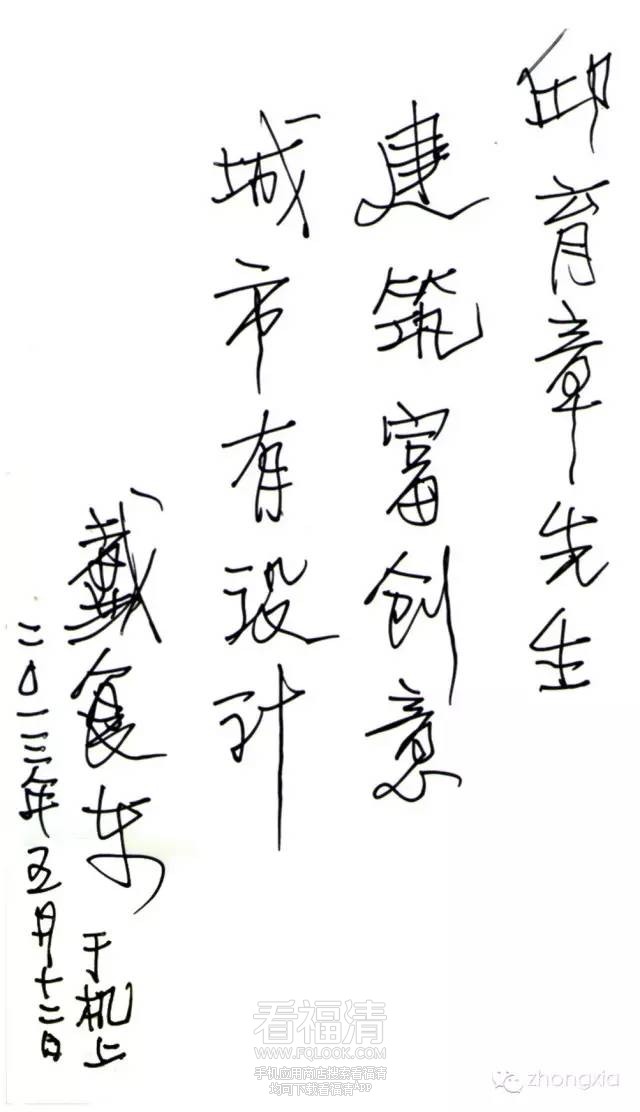 邱育章先生
建筑富创意
城市有设计
戴复东于机上
二〇一三年五月十二日
看福清
WWW.FQLOOK.COM
手机应用商店搜索看福清
均可下载看福清App
zhongxia